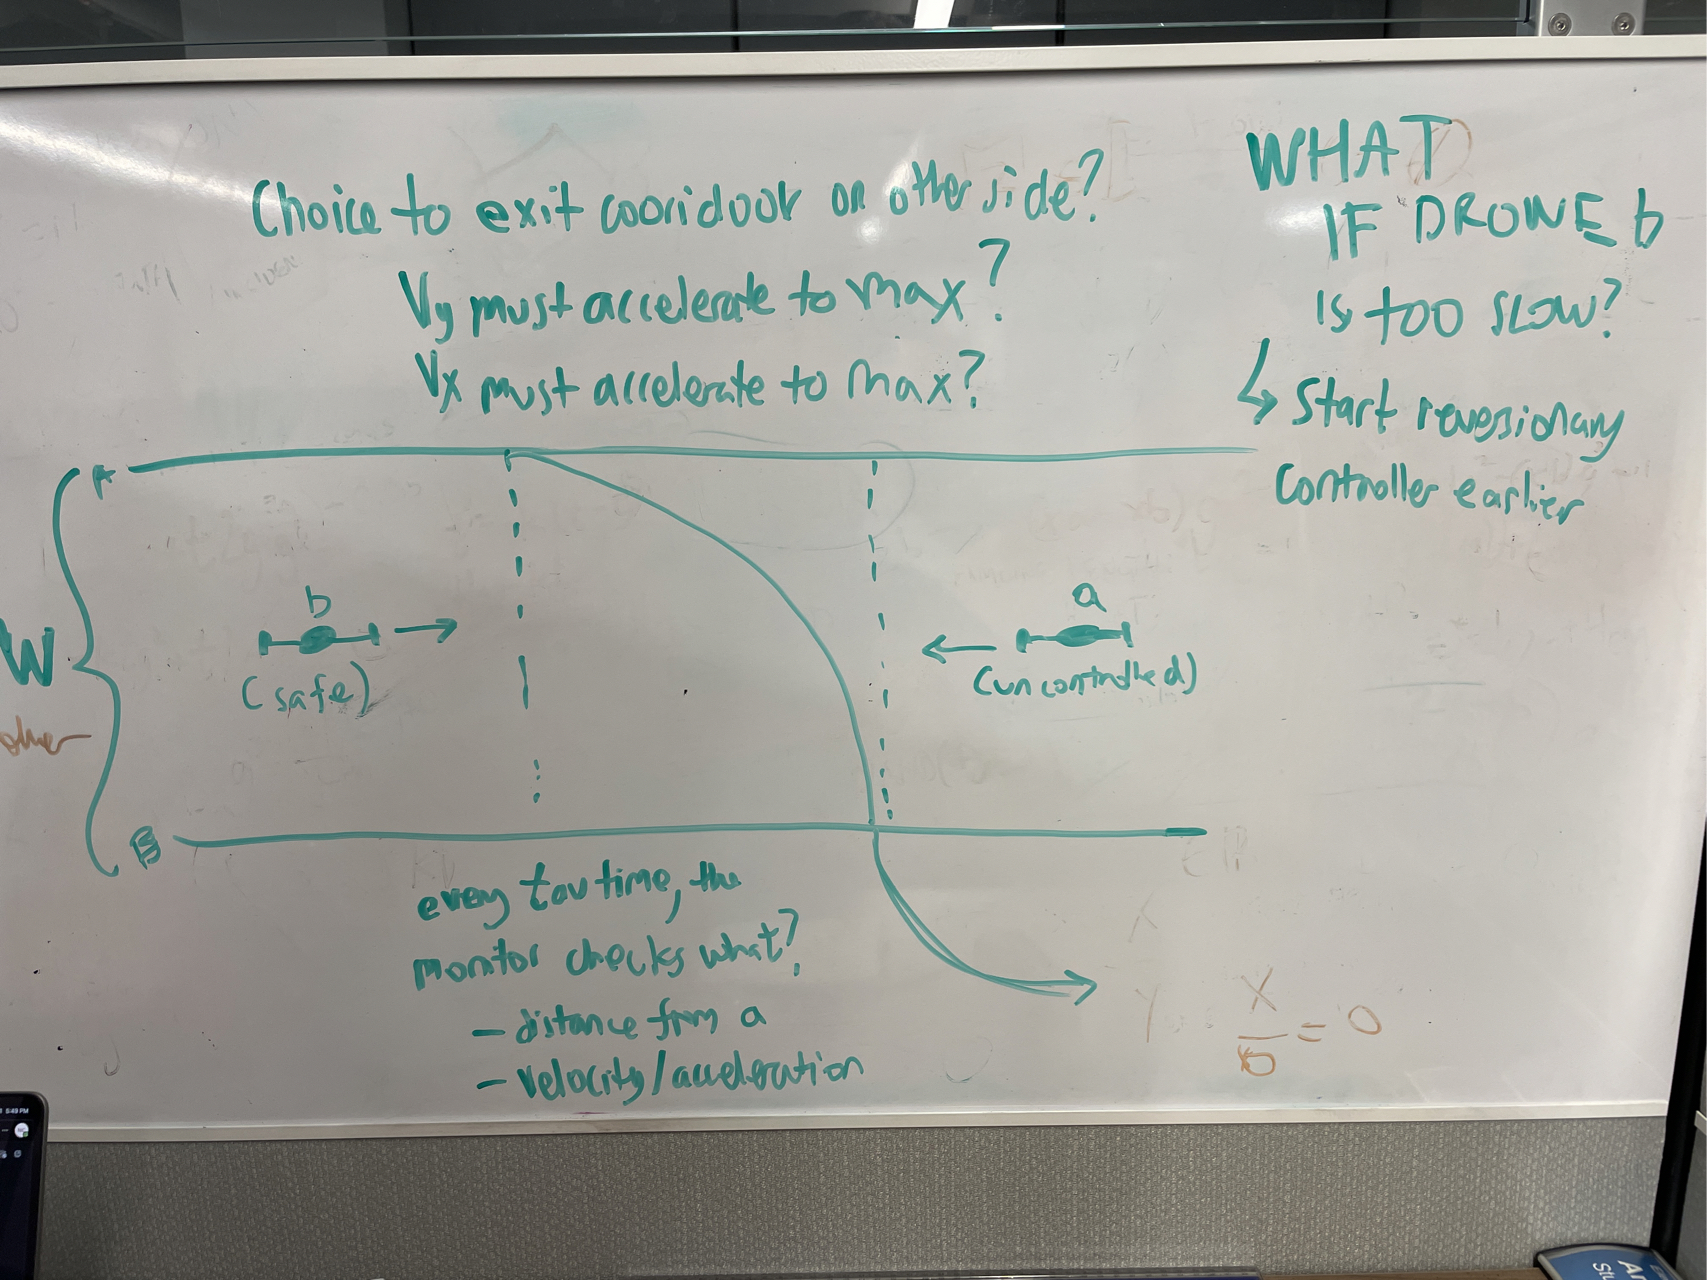 Choice to exit cooridoor on other side?
Vy must accelerate to max?
Vx must accelerate to max?
WHAT
IF DRONE b
is too slow?
↳ Start reversionary
controller earlier
A
b
(safe)
a
(uncontrolled)
W
other
B
every tau time, the
monitor checks what?
- distance from a
- velocity/acceleration
X
Y
X/0 = 0
5:49 PM